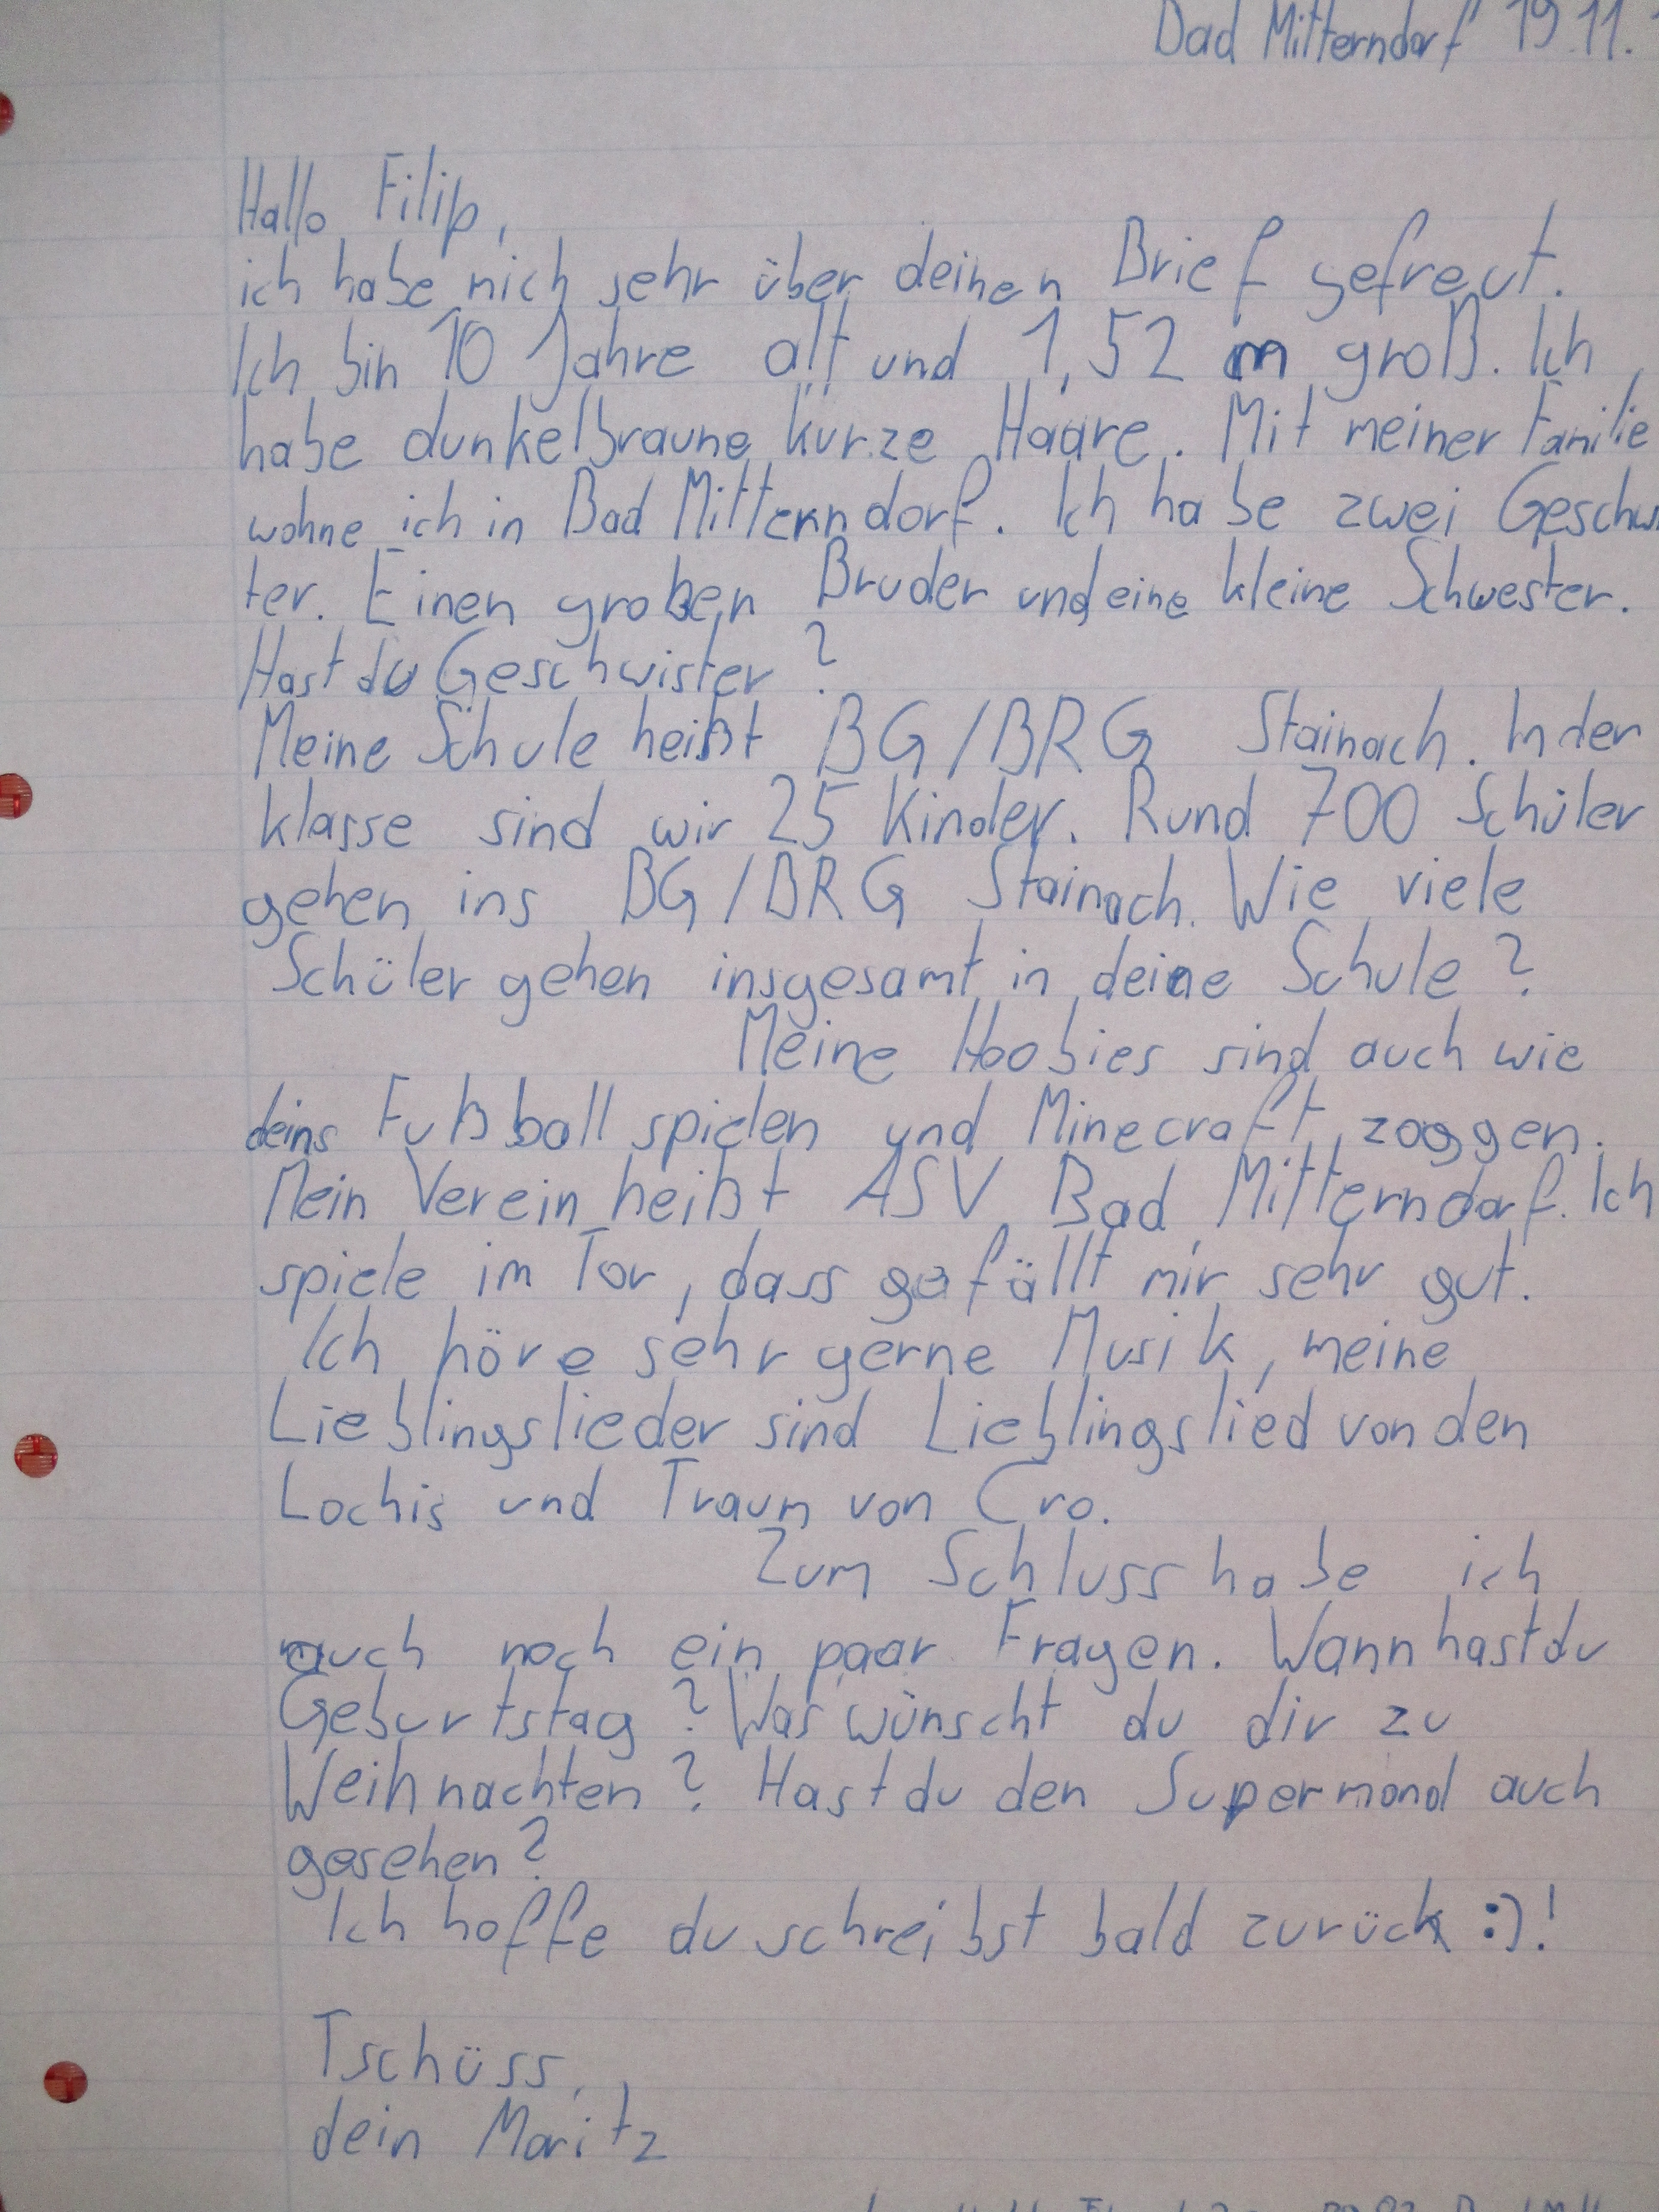 Bad Mitterndorf 19.11.
Hallo Filip,
ich habe mich sehr über deinen Brief gefreut.
Ich bin 10 Jahre alt und 1,52 m groß. Ich
habe dunkelbraune kurze Haare. Mit meiner Familie
wohne ich in Bad Mitterndorf. Ich habe zwei Geschwi
ter. Einen großen Bruder und eine kleine Schwester.
Hast du Geschwister?
Meine Schule heißt BG/BRG Stainach. In der
klasse sind wir 25 Kinder. Rund 700 Schüler
gehen ins BG/BRG Stainach. Wie viele
Schüler gehen insgesamt in deine Schule?
Meine Hoobies sind auch wie
deins Fußball spielen und Minecraft zoggen.
Mein Verein heißt ASV Bad Mitterndorf. Ich
spiele im Tor, dass gefällt mir sehr gut.
Ich höre sehr gerne Musik, meine
Lieblingslieder sind Lieblingslied von den
Lochis und Traum von Cro.
Zum Schluss habe ich
auch noch ein paar Fragen. Wann hast du
Geburtstag? Was wünscht du dir zu
Weihnachten? Hast du den Supermond auch
gesehen?
Ich hoffe du schreibst bald zurück :)!
Tschüss,
dein Moritz